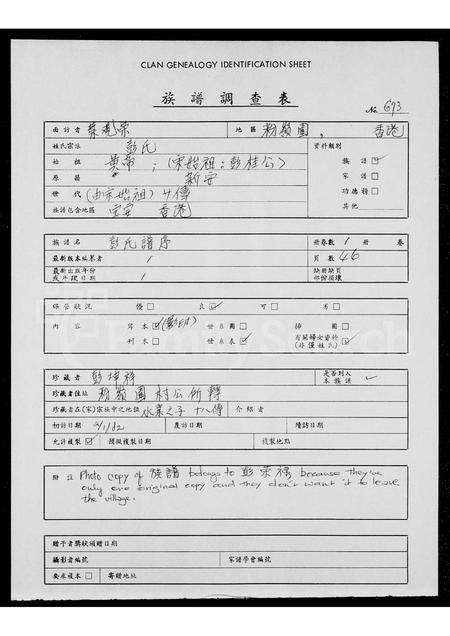 CLAN GENEALOGY IDENTIFICATION SHEET
族譜調查表
No. 673
面訪者 地區 粉嶺圍, 香港
姓氏宗派 彭氏 資料類別
始祖 黃帝; (宋始祖:彭桂公) 族譜 ☑
原籍 新安 家譜 □
世代 (由宋始祖) 廿傳 功德榜 □
族譜包含地區 宝安 香港 其他
族譜名 彭氏譜序 冊卷數 1 冊 卷
最新版本編纂者 1 頁數 46
最新出版年份或斗段日期 1 缺冊缺頁部份損壞
保管狀況 優 □ 良 ☑ 可 □ 劣 □
內容 寫本 ☑ (影印) 世系圖 □ 插圖 □
刊本 □ 世系表 ☑ 有關婦女資料(非僅姓氏) ☑
珍藏者 彭坤祥 是否列入本族譜 ✓
珍藏者住址 粉嶺圍村公所轉
珍藏者在(家)宗族中之地位 水業之子 十八傳 介紹者
初訪日期 覆訪日期 續訪日期
允許複製 ☑ 預擬複製日期 複製地點
附註 Photo copy of 族譜 belongs to 彭榮福 because they've
only one original copy and they don't want it to leave
the village.
贈予者獎狀頒贈日期
攝影者編號 家譜學會編號
要求複本 □ 寄贈地址
FamilySearch